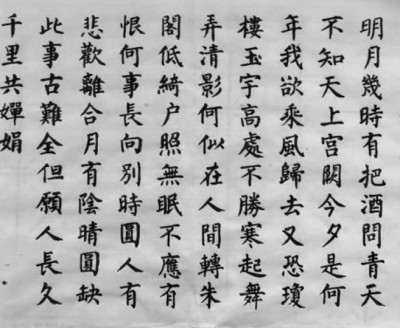 明月幾時有把酒問青天
不知天上宮闕今夕是何
年我欲乘風歸去又恐瓊
樓玉宇高處不勝寒起舞
弄清影何似在人間轉朱
閣低綺户照無眠不應有
恨何事長向別時圓人有
悲歡離合月有陰晴圓缺
此事古難全但願人長久
千里共嬋娟